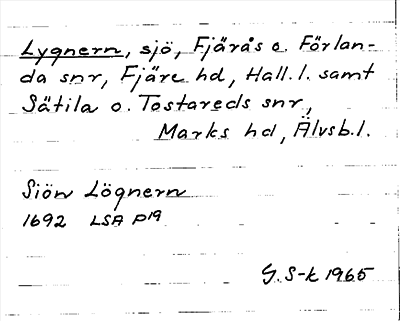 Lygnern, sjö, Fjärås o. Förlan-
da snr, Fjäre hd, Hall. l. samt
Sätila o. Tostareds snr,
Marks hd, Älvsb. l.
Siön Lögnern
1692 LSA P19
G. S-k 1965